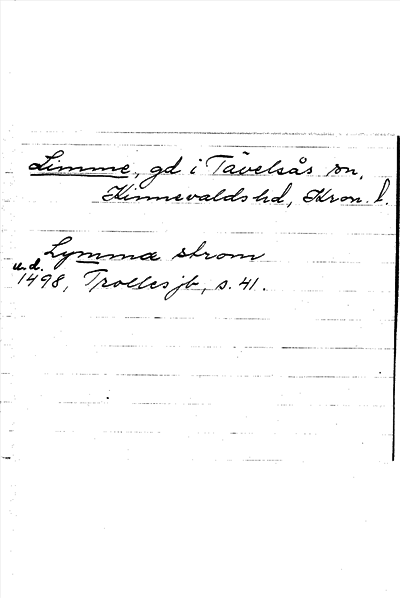 Limme, gd i Tävelsås sn,
Kinnevalds hd, Kron. l.
Lymma strom
u.d.
1498, Trolles jb, s. 41.